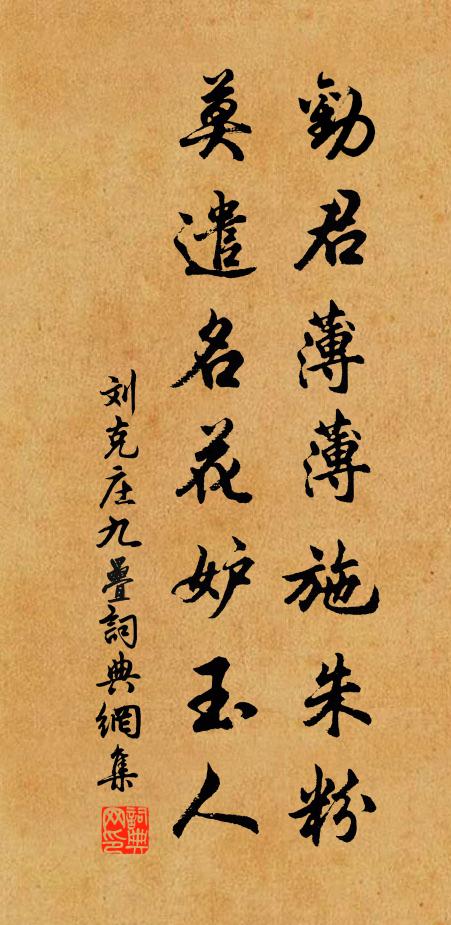 勸君薄薄施朱粉
莫遣名花妒玉人
刘克庄九疊詞典網集
詞典网印